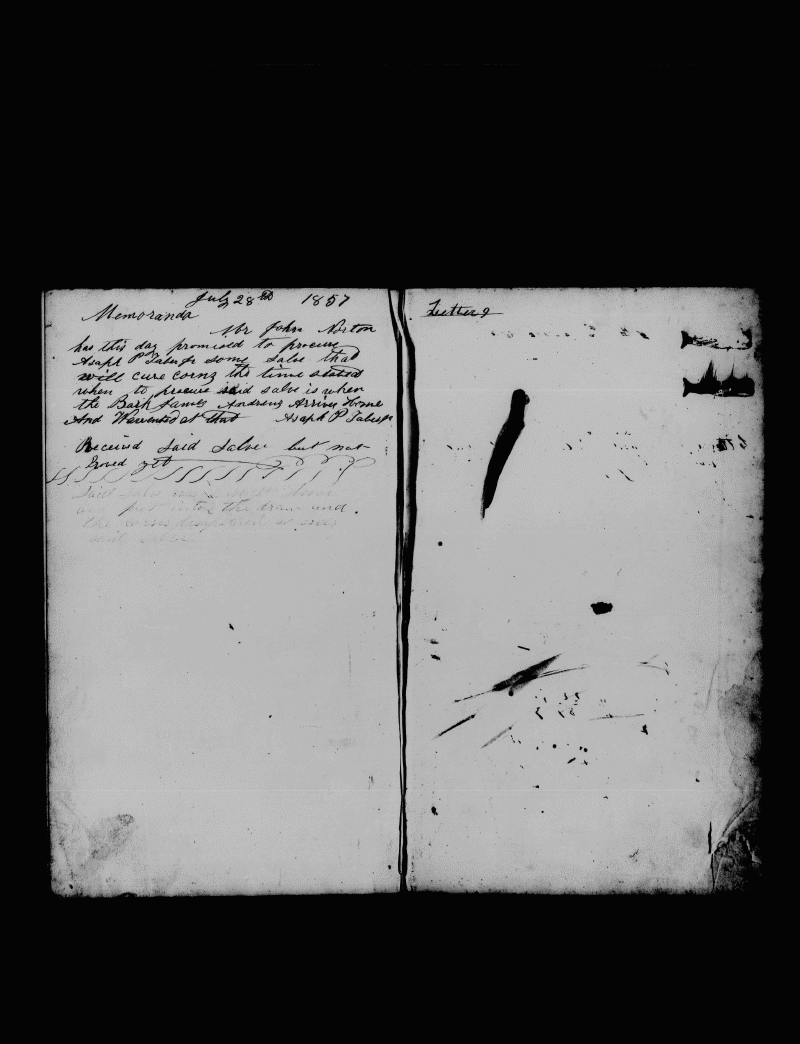 July 28th 1857
Memoranda
Mr John Norton
has this day promised to procure
Asaph P Taber Jr some salve that
will cure cornz the time stated
when to procure said salve is when
the Bark James Andrews Arrives Home
And Warrented at that Asaph P Taber Jr
Received said salve but not
proved yet
Said salve
put into the draw and
the corns
said salve
Letters